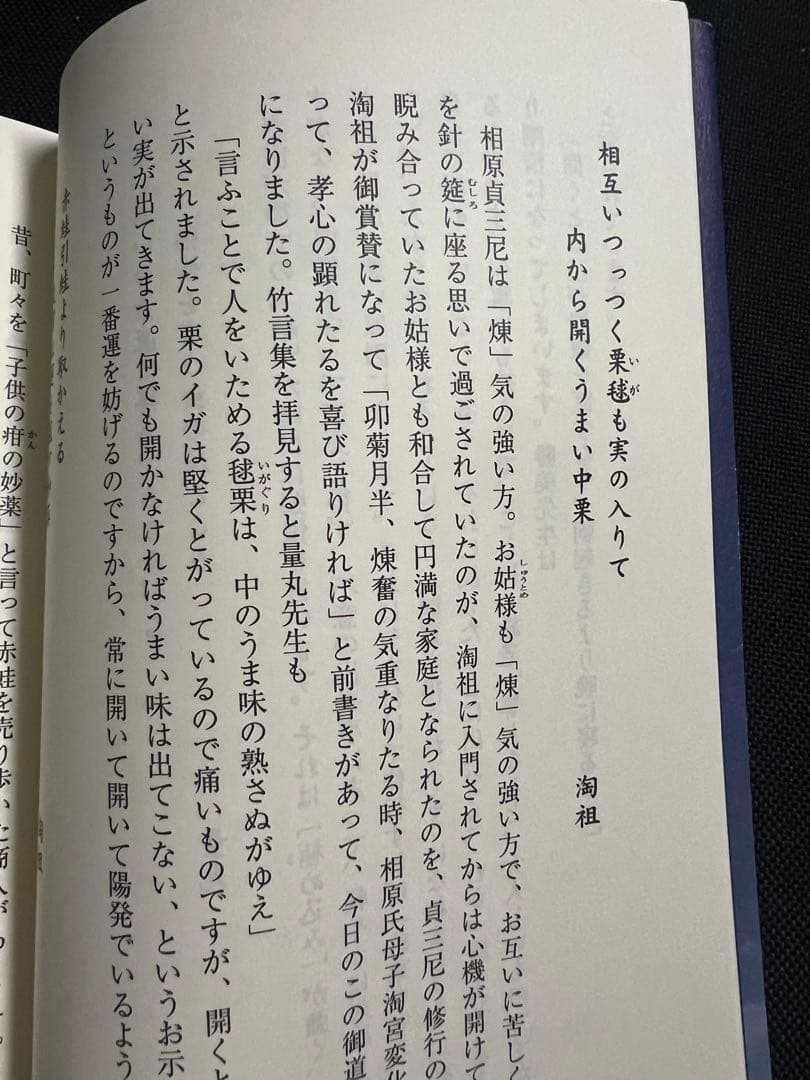 相互いつっつく栗毬も実の入りて
内から開くうまい中栗　淘祖
相原貞三尼は「煉」気の強い方。お姑様も「煉」気の強い方で、お互いに苦しく
を針の筵に座る思いで過ごされていたのが、淘祖に入門されてからは心機が開けて
睨み合っていたお姑様とも和合して円満な家庭となられたのを、貞三尼の修行の
淘祖が御賞賛になって「卯菊月半、煉奮の気重なりたる時、相原氏母子淘宮変化
って、孝心の顕れたるを喜び語りければ」と前書きがあって、今日のこの御道
になりました。竹言集を拝見すると量丸先生も
「言ふことで人をいためる毬栗は、中のうま味の熟さぬがゆえ」
と示されました。栗のイガは堅くとがっているので痛いものですが、開くと
い実が出てきます。何でも開かなければうまい味は出てこない、というお示
というものが一番運を妨げるのですから、常に開いて開いて陽発でいるよう
赤蛙引蛙より取かえる
昔、町々を「子供の疳の妙薬」と言って赤蛙を売り歩いた商人が